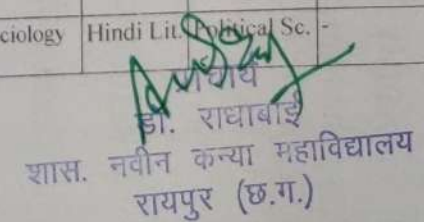 ciology Hindi Lit. Political Sc. -
प्राचार्य
डॉ. राधाबाई
शास. नवीन कन्या महाविद्यालय
रायपुर (छ.ग.)